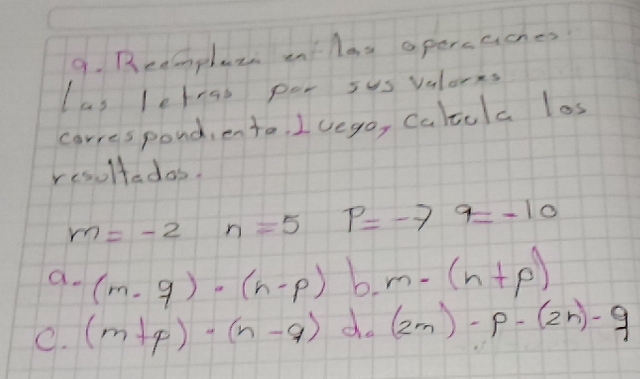 9. Reemplaza en las operaciones
las letras por sus valores
correspondiente. Luego, calcula los
resultados.
m = -2 n = 5 P = -7 q = -10
a. (m - q) - (n - p) b. m - (n + p)
c. (m + p) - (n - q) d. (2m) - p - (2n) - q